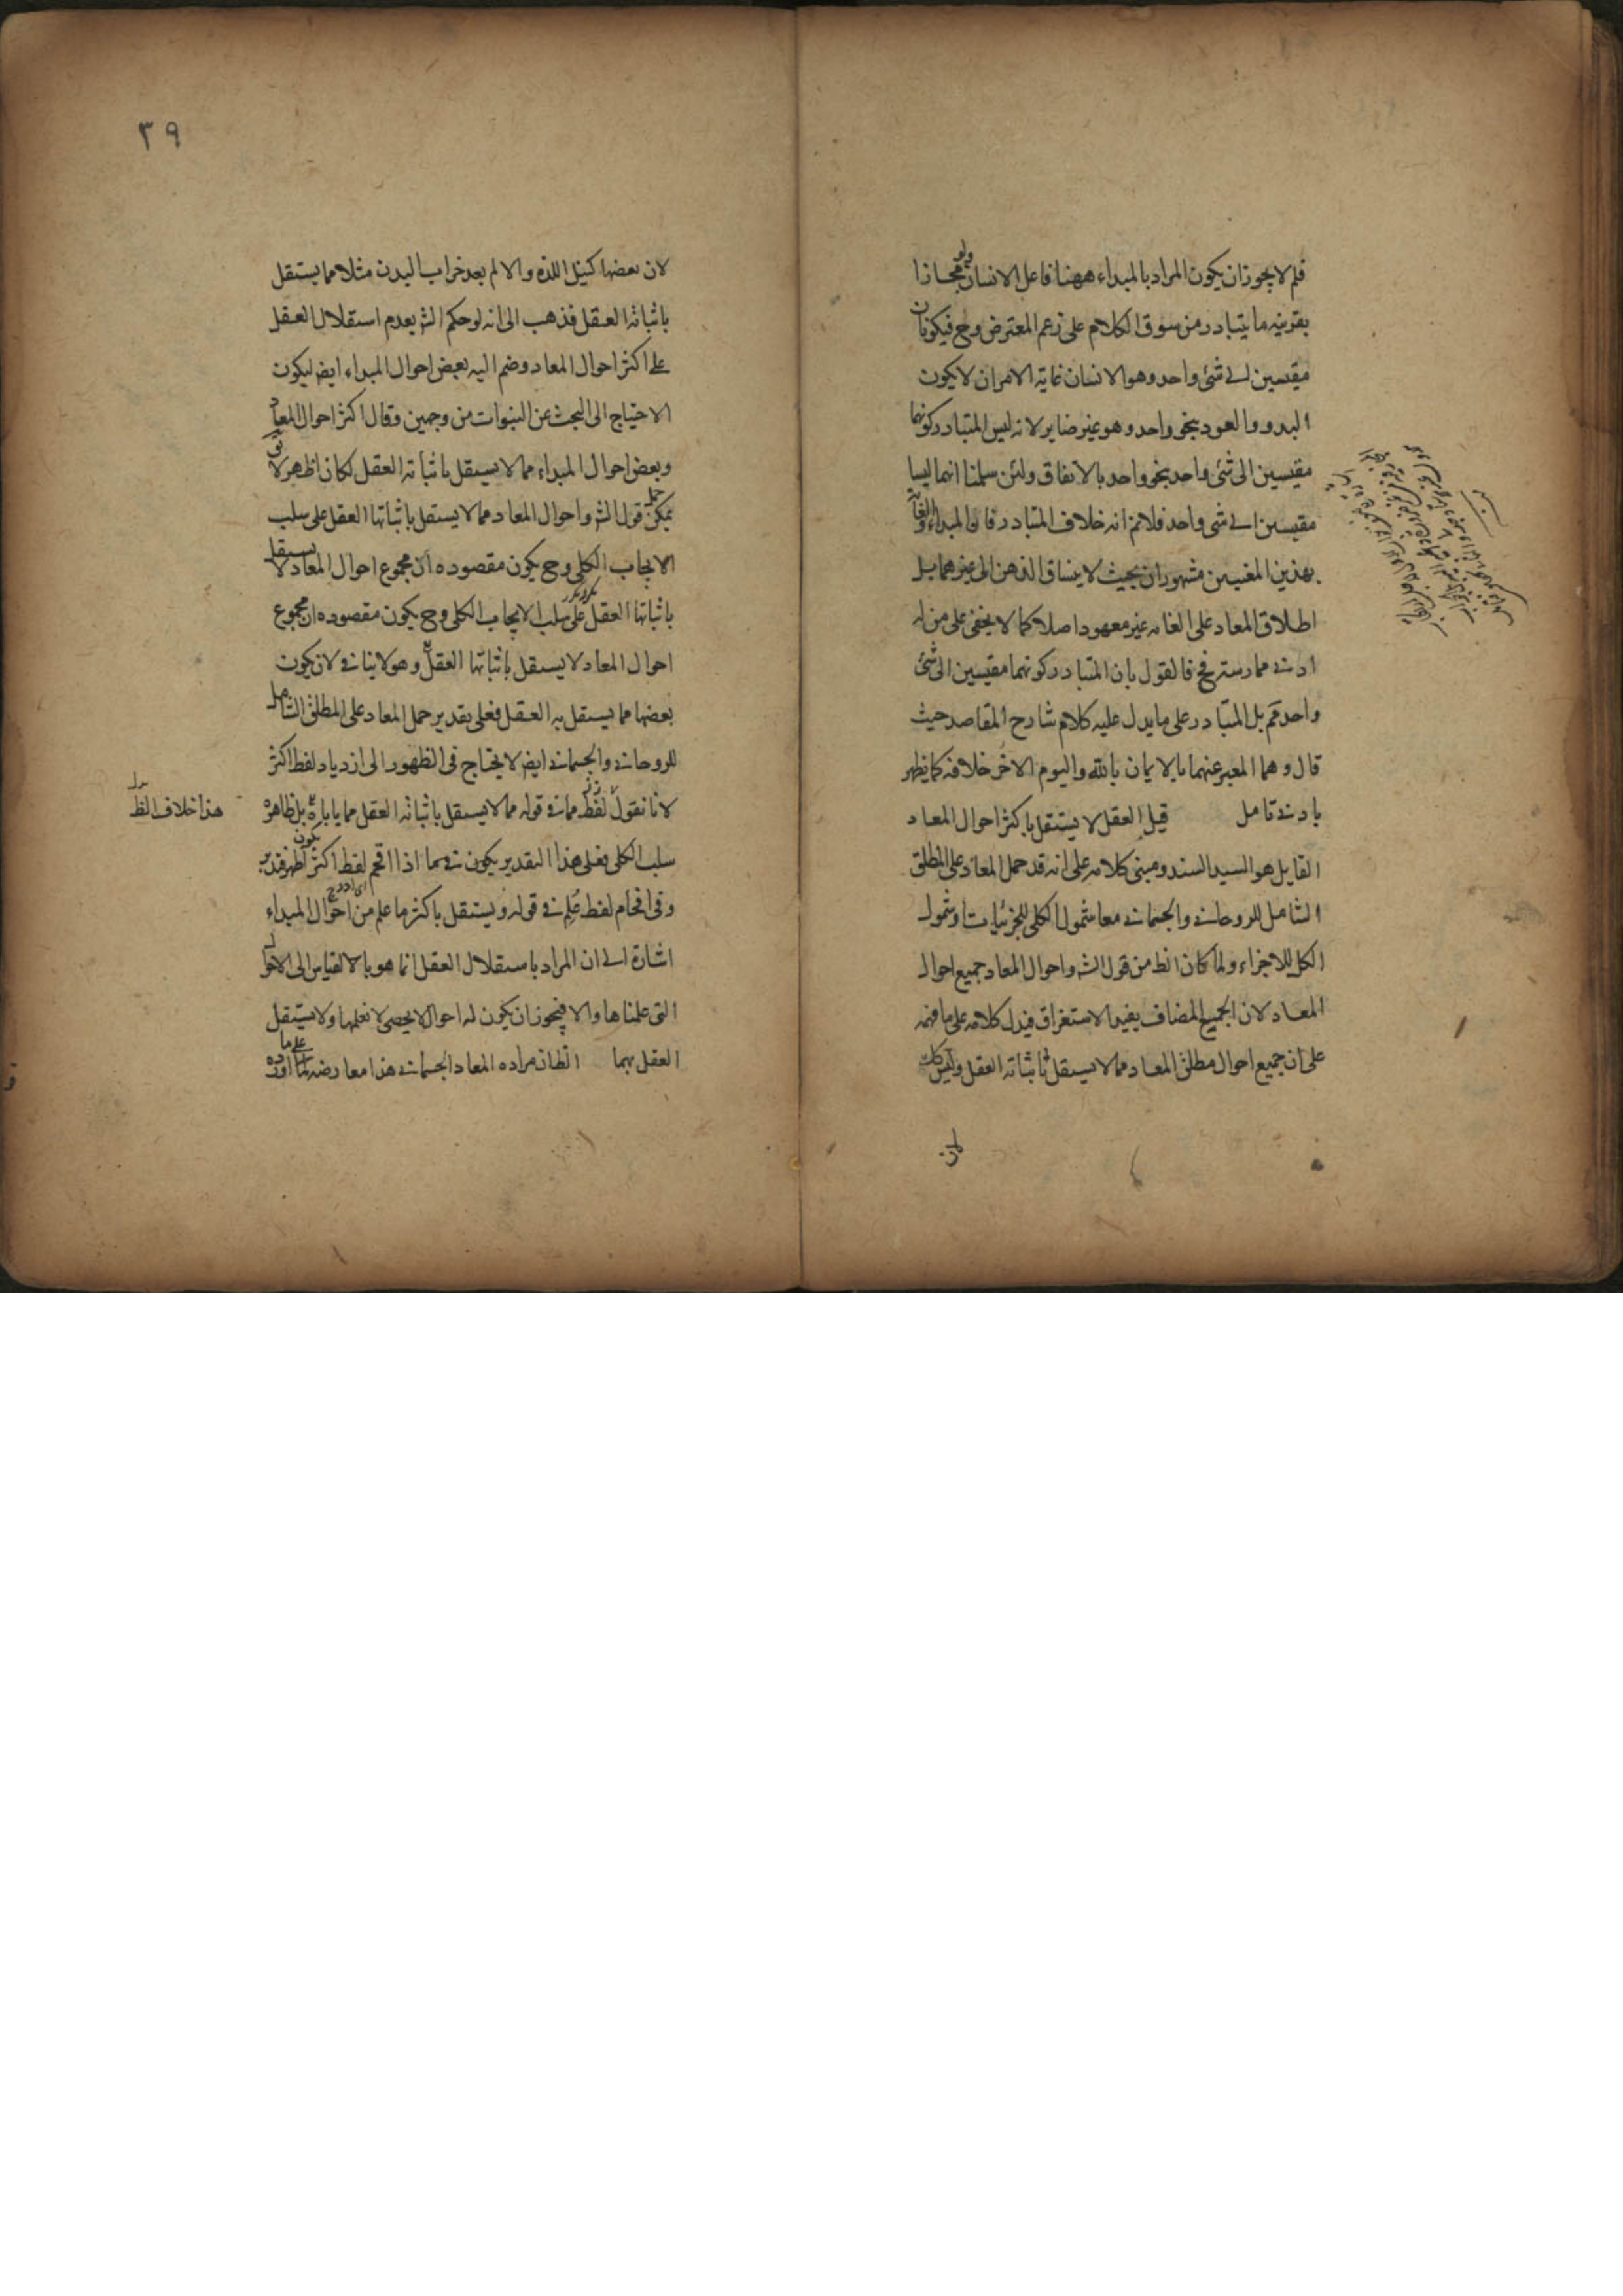 فلم لا يجوز ان يكون المراد بالمبداء ههنا فاعل الانسان ولو مجازا
بقرينه ما يتبادر من سوق الكلام على زعم المعترض وح فيكونان
مقيسين الى شئ واحد وهو الانسان غاية الامر ان لا يكون
البدو والعود بنحو واحد وهو غير ضاير لانه ليس المتبادر كونهما
مقيسين الى شئ واحد بنحو واحد بالاتفاق ولئن سلمنا انهما ليسا
مقيسين الى شئ واحد فلا نم انه خلاف المتبادر فان المبداء والغاية
بهذين المعنيين مشهوران بحيث لا ينساق الذهن الى غيرهما بل
اطلاق المعاد على الغايه غير معهود اصلا كما لا يخفى على من له
ادنى ممارسة فح فالقول بان المتبادر كونهما مقيسين الى شئ
واحد مم بل المتبادر على ما يدل عليه كلام شارح المقاصد حيث
قال وهما المعبر عنهما بالايمان بالله واليوم الاخر خلافه كما يظهر
بادنى تامل قيل العقل لا يستقل باكثر احوال المعاد
القايل هو السيد السند ومبنى كلامه على انه قد حمل المعاد على المطلق
الشامل للروحانى والجسمانى معا شمول الكلى للجزئيات او شمول
الكل للاجزاء ولما كان الظ من قول الشه واحوال المعاد جميع احوال
المعاد لان الجميع المضاف يفيد الاستغراق فيدل كلامه على ما فهمه
على ان جميع احوال مطلق المعاد مما لا يستقل باثباته العقل وليس كك
لان
٣٩
لان بعضها كنيل اللذه والالم بعد خراب البدن مثلا مما يستقل
باثباته العقل فذهب الى انه لو حكم الشه بعدم استقلال العقل
على اكثر احوال المعاد وضم اليه بعض احوال المبداء ايض ليكون
الاحتياج الى البحث عن النبوات من وجهين وقال اكثر احوال المعاد
وبعض احوال المبداء مما لا يستقل باثباته العقل لكان اظهر لا يق
يمكن حمل قول الشه واحوال المعاد مما لا يستقل باثباتها العقل على سلب
الايجاب الكلى وح يكون مقصوده ان مجموع احوال المعاد لا يستقل
باثباتها العقل على سلب الايجاب الكلى وح يكون مقصوده ان مجموع
احوال المعاد لا يستقل باثباتها العقل وهو لا ينافى لان يكون
بعضها مما يستقل به العقل فعلى تقدير حمل المعاد على المطلق الشامل
للروحانى والجسمانى ايض لا يحتاج فى الظهور الى ازدياد لفظ اكثر
لانا نقول لفظ مما فى قوله مما لا يستقل باثباته العقل مما يأباه بل ظاهره
هذا خلاف الظ
سلب الكلى فعلى هذا التقدير يكون فيما اذا اقحم لفظ اكثر يكون اظهر فتدبر
وفى اقحام لفظ علم فى قوله ويستقل باكثر ما علم من احوال المبداء
اشارة الى ان المراد باستقلال العقل انما هو بالقياس الى الاحوال
التى علمناها والا فيجوز ان يكون له احوال لا يحصى لا نعلمها ولا يستقل
العقل بهما الظ ان مراده المعاد الجسمانى هذا معارضه على ما اورده